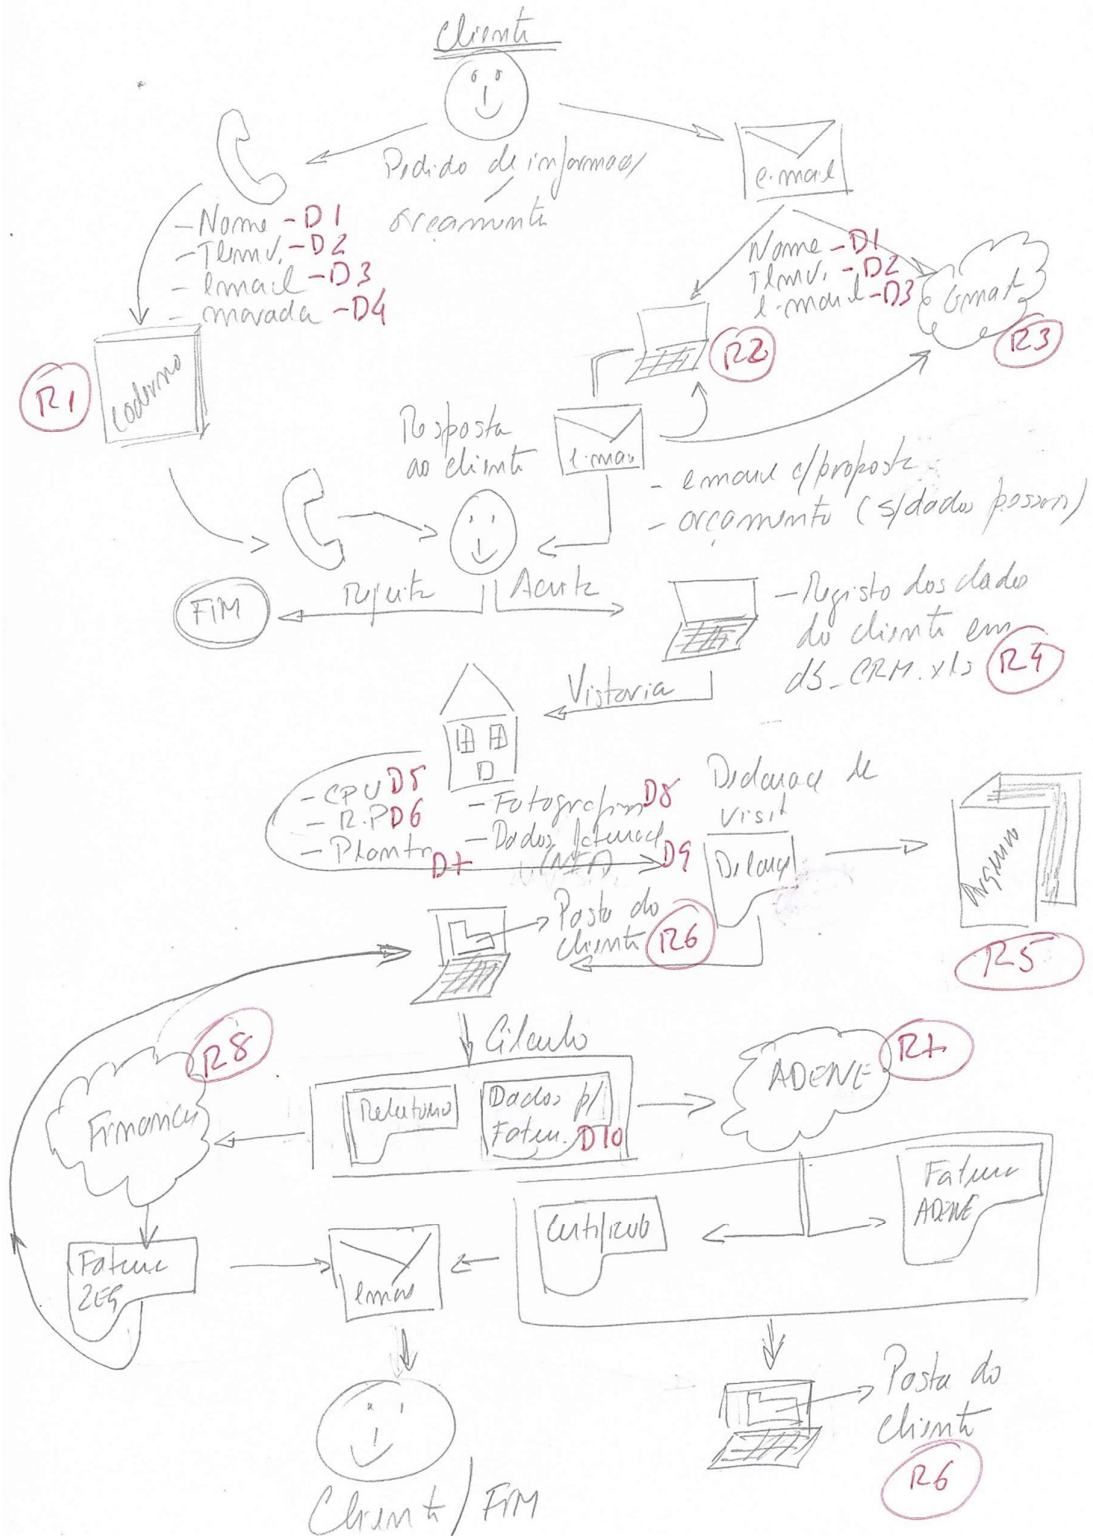 Cliente
Pedido de informação/
orçamento
e-mail
- Nome - D1
- Tlemv. - D2
- email - D3
- morada - D4
Nome - D1
Tlemv. - D2
e-mail - D3
Gmail
R3
R2
R1
caderno
Resposta
ao cliente
e-mail
- email c/proposta
- orçamento (s/dados pessoais)
FIM
Rejeita
Aceita
- Registo dos dados
do cliente em
db_CRM.xls R4
Vistoria
- CPU D5
- R.P D6
- Planta D7
- Fotografias D8
- Dados faturação D9
(NIF)
Declaração de
Visita
Arquivo
R5
Pasta do
cliente R6
Cálculo
R8
Finanças
Relatório
Dados p/
Fatur. D10
ADENE
R7
Fatura
ZEG
email
Certificado
Fatura
ADENE
Cliente / FIM
Pasta do
cliente
R6